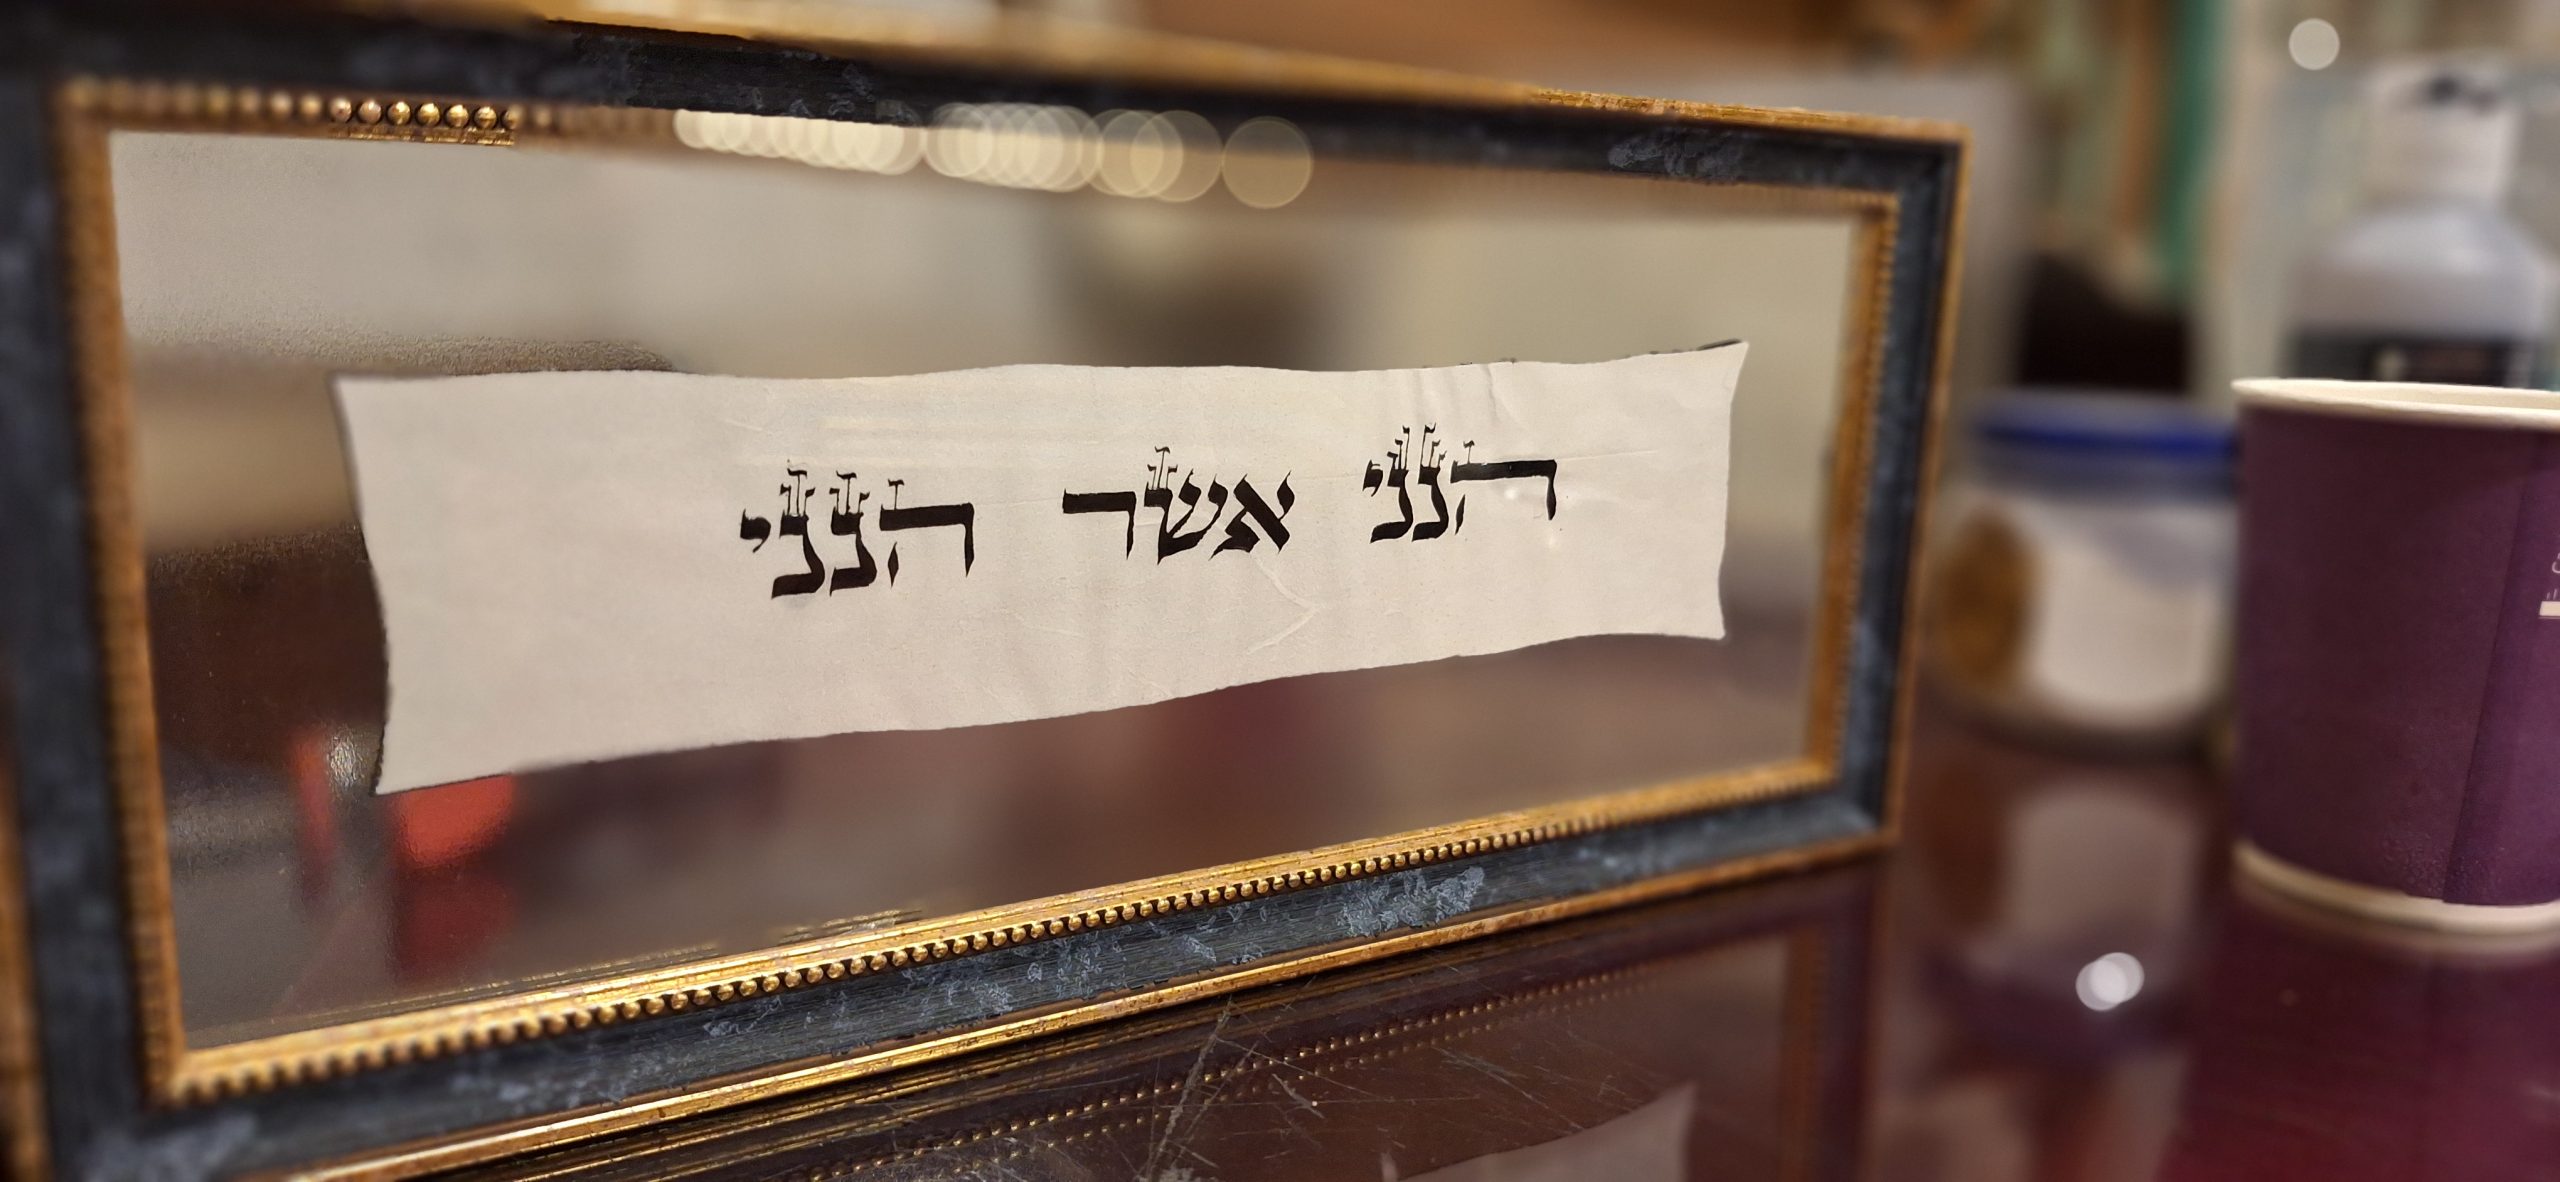 הנני אשר הנני